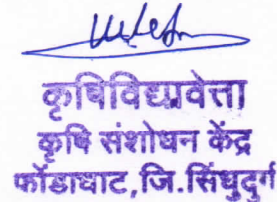 कृषिविद्यावेत्ता
कृषि संशोधन केंद्र
फोंडाघाट, जि. सिंधुदुर्ग